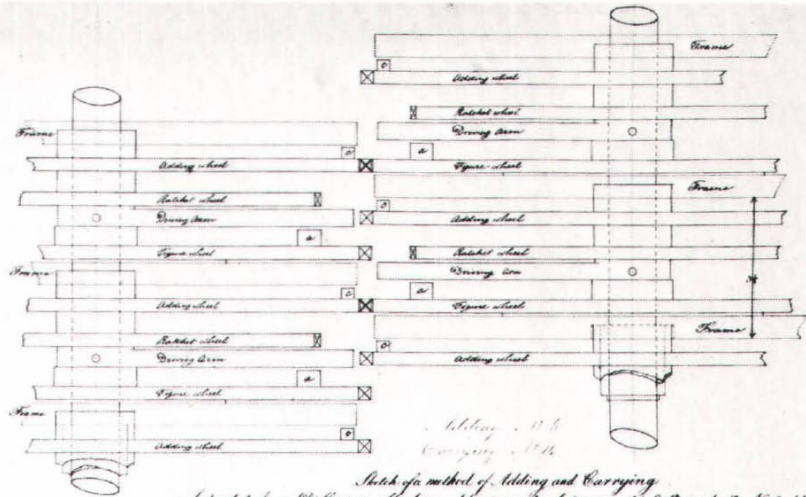 Frame
Adding wheel
Ratchet wheel
Driving Arm
a
Figure wheel
Frame
c
Adding wheel
Ratchet wheel
Driving Arm
a
Figure wheel
Frame
c
Adding wheel
Frame
c
Adding wheel
Ratchet wheel
Driving Arm
a
Figure wheel
Frame
c
Adding wheel
Ratchet wheel
Driving Arm
a
Figure wheel
Frame
c
Adding wheel
Adding
Carrying
Sketch of a method of Adding and Carrying